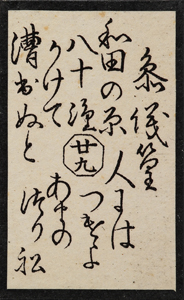 参議篁
和田の原
八十嶋
かけて
漕出ぬと
廿九
人には
つげよ
あまの
つり舩